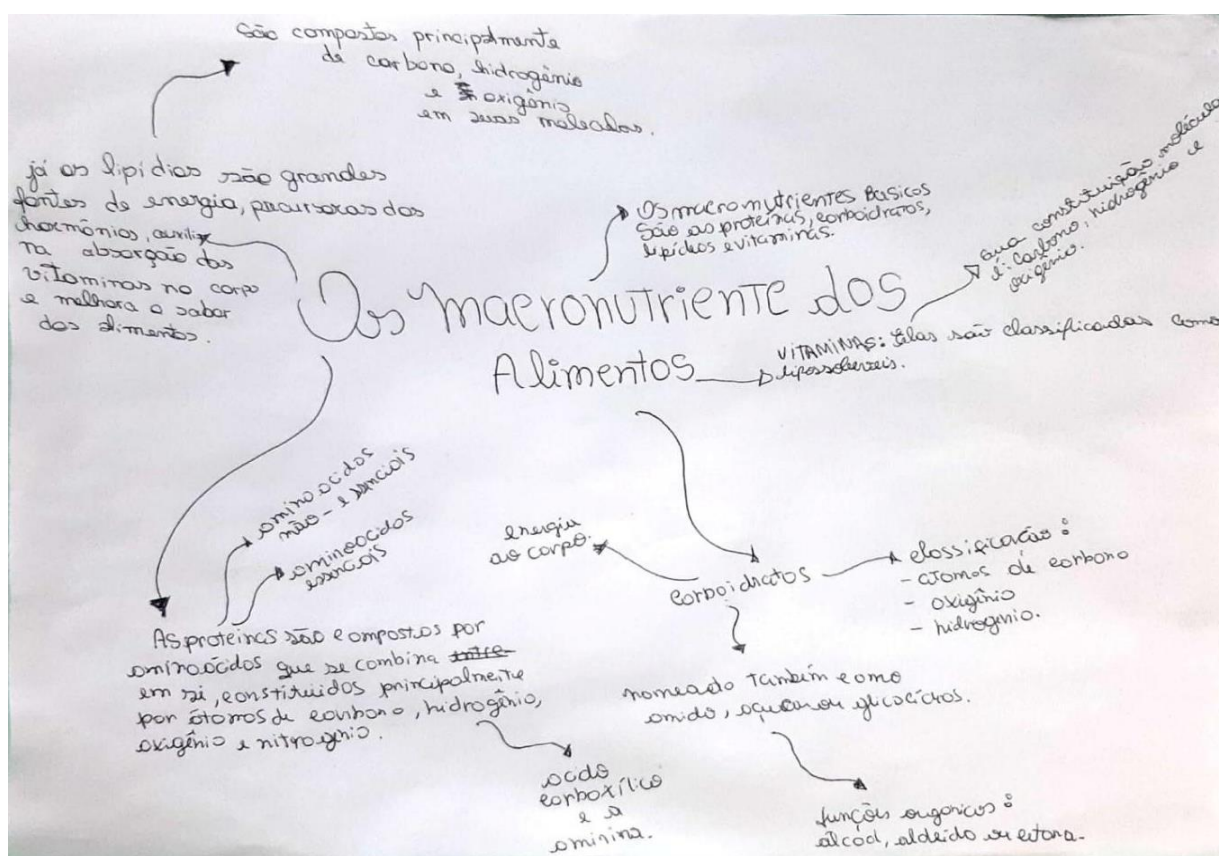 São compostas principalmente
de carbono, hidrogênio
e oxigênio
em suas moleculas.
já os lipídios são grandes
fontes de energia, precursoras dos
hormônios, auxilia
na absorção das
vitaminas no corpo
e melhora o sabor
dos alimentos.
Os macronutrientes Basicos
São as proteínas, carboidratos,
lipídeos e vitaminas.
sua constituição molécula
é: Carbono, hidrogênio e
oxigênio.
Os macronutriente dos
Alimentos
VITAMINAS: Elas são classificadas como
lipossoluveis.
aminoocidos
não - essenciais
aminoocidos
essenciais
As proteínas são compostos por
aminoácidos que se combina entre
em si, constituidos principalmente
por átomos de carbono, hidrogênio,
oxigênio e nitrogenio.
acido
carboxílico
e a
aminina.
energia
ao corpo.
Carboidratos
classificação:
- atomos de carbono
- oxigênio
- hidrogenio.
nomeado também como
amido, açucar ou
funções organicos:
álcool, aldeído ou cetona.